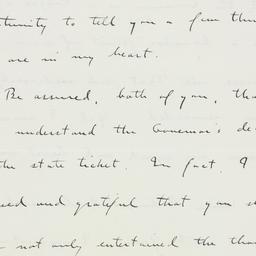 tunity to tell you a few thin
are in my heart.
Be assured, both of you, tha
understand the Governor's de
the state ticket. In fact, I
eed and grateful that you s
not only entertained the thou